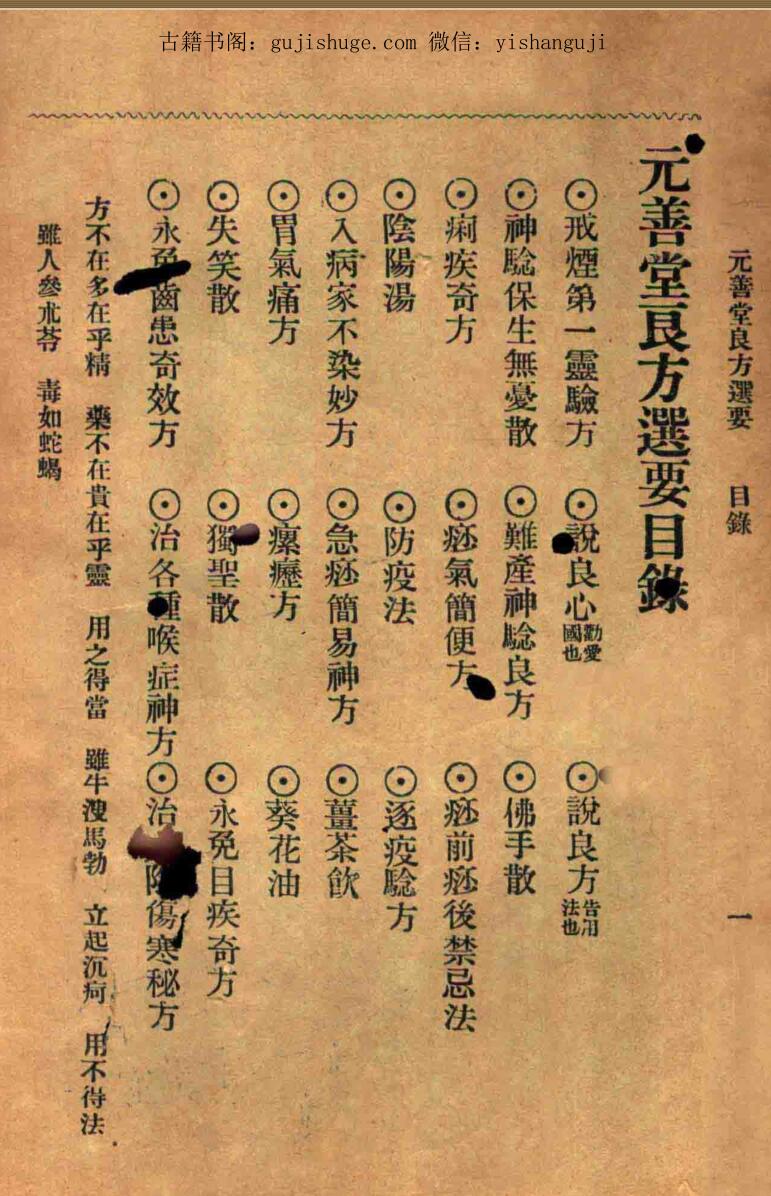 古籍书阁：gujishuge.com 微信：yishanguji
元善堂良方選要 目錄 一
元善堂良方選要目錄
⊙戒煙第一靈驗方 ⊙說良心勸愛國也 ⊙說良方告用法也
⊙神騐保生無憂散 ⊙難產神騐良方 ⊙佛手散
⊙痢疾奇方 ⊙痧氣簡便方 ⊙痧前痧後禁忌法
⊙陰陽湯 ⊙防疫法 ⊙逐疫騐方
⊙入病家不染妙方 ⊙急痧簡易神方 ⊙薑茶飲
⊙胃氣痛方 ⊙瘰癧方 ⊙葵花油
⊙失笑散 ⊙獨聖散 ⊙永免目疾奇方
⊙永免齒患奇效方 ⊙治各種喉症神方 ⊙治傷寒秘方
方不在多在乎精 藥不在貴在乎靈 用之得當 雖牛溲馬勃 立起沉疴 用不得法
雖人參朮苓 毒如蛇蝎